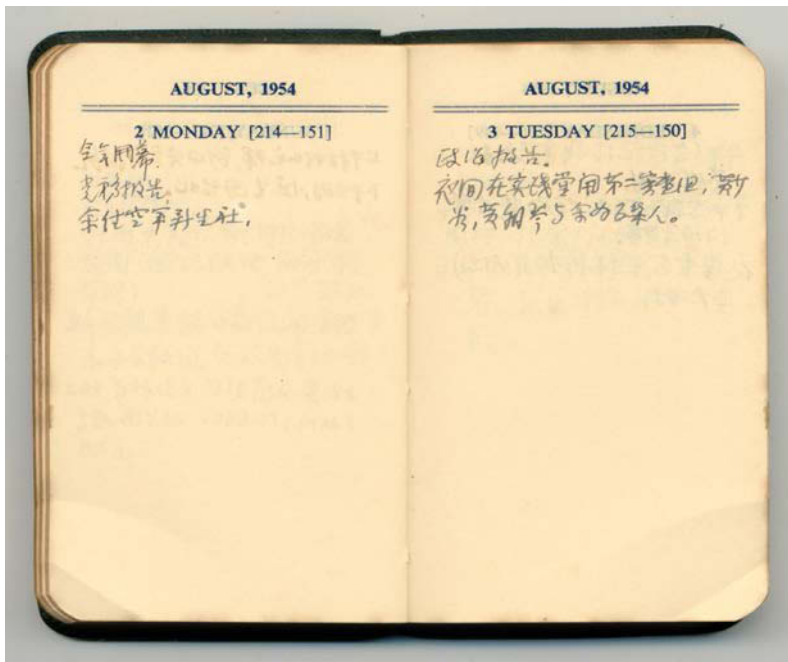 AUGUST, 1954
2 MONDAY [214—151]
全会開幕.
党務报告,
余住空军新生社.
AUGUST, 1954
3 TUESDAY [215—150]
政治报告.
夜间在实践堂開第二审查组,
与余为召集人。